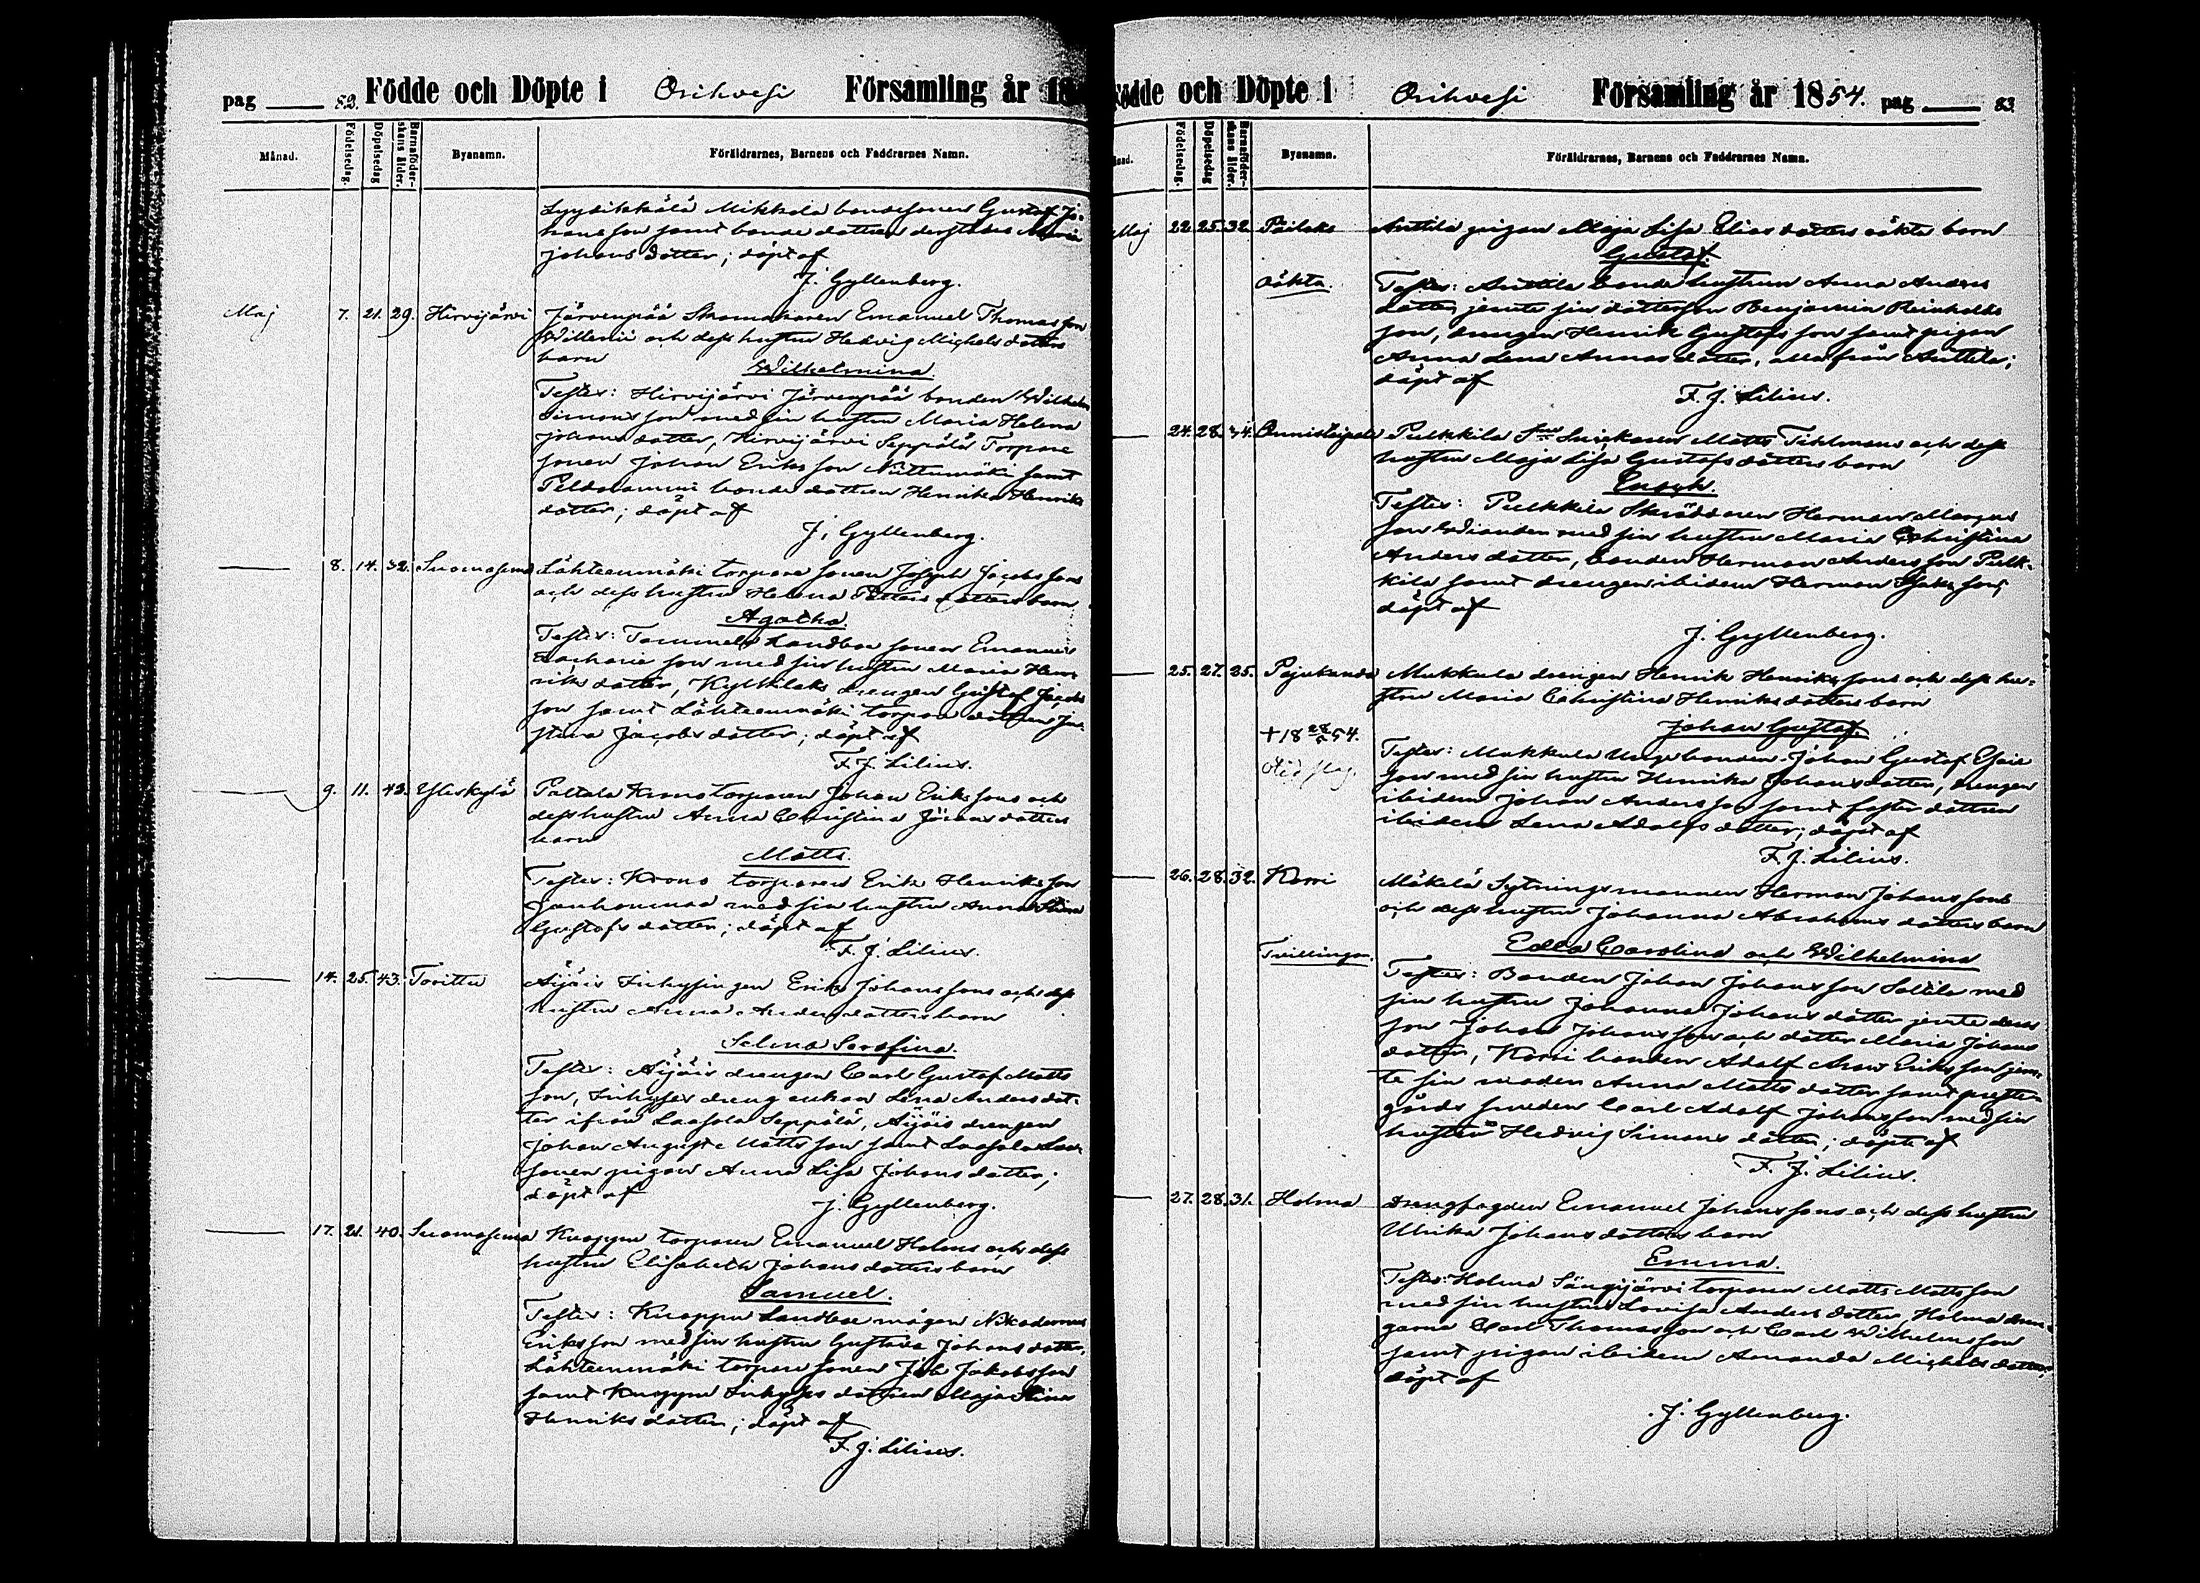 pag 82. Födde och Döpte i Orihvesi Församling år 18
Månad. Födelsedag. Döpelsedag Barnaföder-skans ålder. Byanamn. Föräldrarnes, Barnens och Faddrarnes Namn.
Lyysikkälä Mikkola bondesonen Gustaf Jo-
hans son samt bonde dottren derstädes Maria
Johans dotter; döpt af
J. Gyllenberg.
Maj 7. 21. 29. Hirvijärvi Järvenpää Skomakaren Emanuel Thomas son
Willenii och dess hustru Hedvig Michels dotters
barn
Wilhelmina.
Testes: Hirvijärvi Järvenpää bonden Wilhelm
Simons son med sin hustru Maria Helena
Johans dotter, Hirvijärvi Seppälä Torpare
sonen Johan Eriks son Niittumäki samt
Peldosaumi bonde dottren Henrika Henriks
dotter; döpt af
J. Gyllenberg.
8. 14. 32. Suomasema Lähteenmäki torpare sonen Joseph Jacobs sons
och dess hustru Helena Petters dotters barn
Agatha.
Testes: Tommela Landboe sonen Emanuel
Zacharie son med sin hustru Maria Hen-
riks dotter, Kylkilaks drengen Gustaf Jacobs
son samt Lähteenmäki torpare dottren Ju-
stina Jacobs dotter; döpt af
F. J. Lilius.
9. 11. 42. Yliskylä Paltala Kronotorparen Johan Eriks sons och
dess hustru Anna Christina Jörans dotters
barn
Matts.
Testes: Krono torparen Erik Henriks son
Jouhonmaa med sin hustru Anna Stina
Gustofs dotter; döpt af
F. J. Lilius.
14. 25. 43. Torittu Äijäis Inhysingen Erik Johans sons och dess
hustru Anna Anders dotters barn
Selma Serafina.
Testes: Äijäis drengen Carl Gustaf Matts
son, Inhyses dreng enkan Lena Anders dot-
ter ifrån Laasola Seppälä, Äijäis drengen
Johan August Matts son samt Laasola
sonen pigan Anna Lisa Johans dotter;
döpt af
J. Gyllenberg.
17. 21. 40. Suomasema Knappu torparen Emanuel Holms och dess
hustru Elisabeth Johans dotters barn
Samuel.
Testes: Knappu Landboe mågen Nikodemus
Eriks son med sin hustru Gustava Johans dotter,
Lähteenmäki torpare sonen Job Jakobs son
samt Knappu Inhyses dottren Maja Stina
Henriks dotter; döpt af
F. J. Lilius.
Födde och Döpte i Orihvesi Församling år 1854. pag 83.
Månad. Födelsedag. Döpelsedag Barnaföder-skans ålder. Byanamn. Föräldrarnes, Barnens och Faddrarnes Namn.
Maj 22. 25. 32. Päilaks Anttila pigan Maja Lisa Elias dotters oäkta barn
Gustaf.
oäkta. Testes: Anttila bonde hustrun Anna Anders
dotter jemte sin dotterson Benjamin Reinholds
son, drengen Henrik Gustafs son samt pigan
Anna Lena Annas dotter, alla från Anttila;
döpt af
F. J. Lilius.
24. 28. 34. Onnistaipale Pulkkila Snickaren Matts Tihlmans och dess
hustru Maja Lisa Gustafs dotters barn
Enoch.
Testes: Pulkkila Skräddaren Herman Margus
son Widiander med sin hustru Maria Christina
Anders dotter, bonden Herman Anders son Pulk-
kila samt drengen ibidem Herman Isaks son;
döpt af
J. Gyllenberg.
25. 27. 35. Pajukanda Mukkala drengen Henrik Henriks sons och dess hu-
stru Maria Christina Henriks dotters barn
Johan Gustaf.
+ 18 28/5 54. Testes: Mukkala Unge bonden Johan Gustaf Esaie
Slag. son med sin hustru Henrika Johans dotter, drengen
ibidem Johan Anders son samt foster dottren
ibidem Lena Adolfs dotter; döpt af
F. J. Lilius.
26. 28. 32. Korri Mäkelä Sytningsmannen Herman Johans sons
och dess hustru Johanna Abrahams dotters barn
Edla Carolina och Wilhelmina
Tvillingar. Testes: Bonden Johan Johans son Soltila med
sin hustru Johanna Johans dotter jemte deras
son Johan Johans son och dotter Maria Johans
dotter, Korri bonden Adolf Aron Eriks son jem-
te sin moder Anna Matts dotter samt prest-
gårds smeden Carl Adolf Johans son med sin
hustru Hedvig Simons dotter; döpte af
F. J. Lilius.
27. 28. 31. Holma Drengfogden Emanuel Johans sons och dess hustru
Ulrika Johans dotters barn
Emma.
Testes: Holma Särgijärvi torparen Matts Matts son
med sin hustru Lovisa Anders dotter, Holma dren-
garna Carl Thomas son och Carl Wilhelms son
samt pigan ibidem Amanda Michels dotter;
döpt af
J. Gyllenberg.